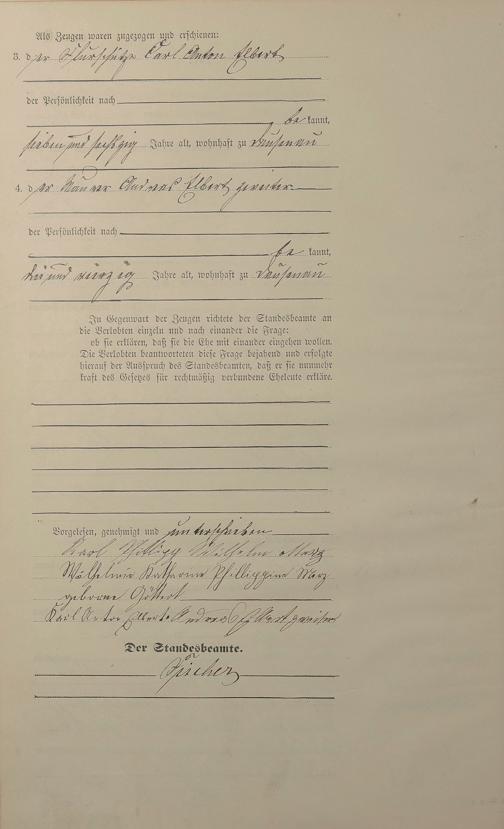 Als Zeugen waren zugezogen und erschienen:
3. der Flurschütz Carl Anton Elbert
der Persönlichkeit nach
be kannt,
sieben und sechzig Jahre alt, wohnhaft zu Dausenau
4. der Maurer Andreas Elbert zweiter
der Persönlichkeit nach
be kannt,
drei und vierzig Jahre alt, wohnhaft zu Dausenau
In Gegenwart der Zeugen richtete der Standesbeamte an
die Verlobten einzeln und nach einander die Frage:
ob sie erklären, daß sie die Ehe mit einander eingehen wollen.
Die Verlobten beantworteten diese Frage bejahend und erfolgte
hierauf der Ausspruch des Standesbeamten, daß er sie nunmehr
kraft des Gesetzes für rechtmäßig verbundene Eheleute erkläre.
Vorgelesen, genehmigt und unterschrieben
Karl Philipp Wilhelm Merz
Wilhelmine Katharine Phillippine Merz
geborne Göttert
Karl Anton Elbert Andreas Elbert zweiter
Der Standesbeamte.
Fischer